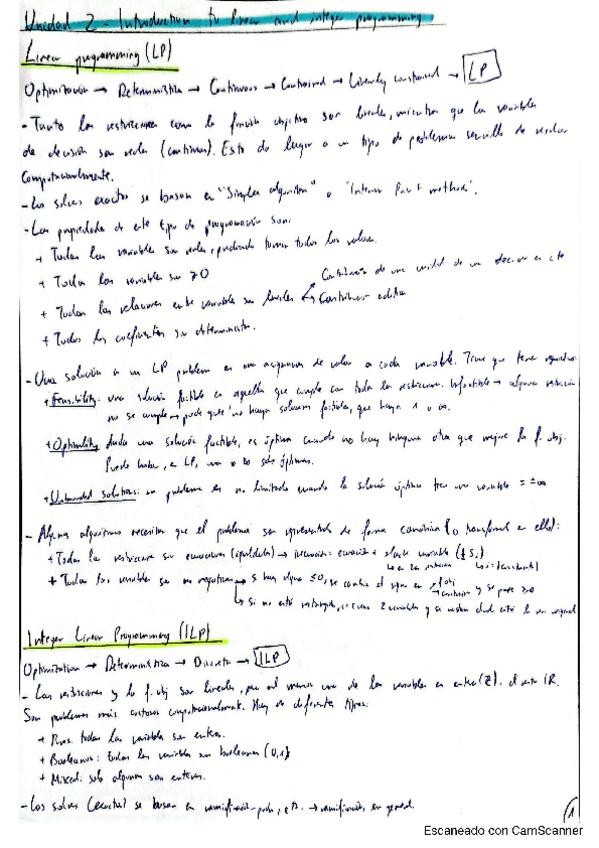 Unidad 2 - Introduction to linear and integer programming
Linear programming (LP)
Optimización → Determinística → Continuous → Constrained → Linearly constrained → LP
- Tanto las restricciones como la función objetivo son lineales, mientras que las variables
de decisión son reales (continuas). Esto da lugar a un tipo de problemas sencillo de resolver
computacionalmente.
- Los solvers exactos se basan en "Simplex algorithm" o "Interior Point methods".
- Las propiedades de este tipo de programación son:
+ Todas las variables son reales, pudiendo tomar todos los valores.
+ Todas las variables son ≥0
+ Todas las relaciones entre variables son lineales
+ Todos los coeficientes son deterministas.
- Una solución a un LP problem es una asignación de valor a cada variable. Tiene que tener
+ Feasibility: una solución factible es aquella que cumple con todas las restricciones. Infactible → alguna restricción
no se cumple → puede que no haya soluciones factibles, que haya 1 o ∞.
+ Optimality: dada una solución factible, es óptima cuando no hay ninguna otra que mejore la f. obj.
Puede haber, en LP, una o ∞ sols óptimas.
+ Unbounded solutions: un problema es no limitado cuando la solución óptima tiene una variable = ±∞
- Algunos algoritmos necesitan que el problema sea representado de forma canónica (o transformarla en ella):
+ Todas las restricciones son ecuaciones (igualdades) → inecuación: ecuación + slack variable (± Si)
+ Todas las variables son no negativas → si hay alguna ≤0, se cambia el signo en f. obj
y se pone ≥0
Integer Linear Programming (ILP)
Optimization → Deterministica → Discreta → ILP
- Las restricciones y la f. obj son lineales, pero al menos una de las variables es entera (Z). el resto IR.
Son problemas más costosos computacionalmente. Hay de diferentes tipos:
+ Puros: todas las variables son enteras.
+ Booleanos: todas las variables son booleanas (0,1)
+ Mixed: solo algunas son enteras.
- Los solvers (exactos) se basan en ramificación-poda, etc. → ramificación en general.
1
Escaneado con CamScanner